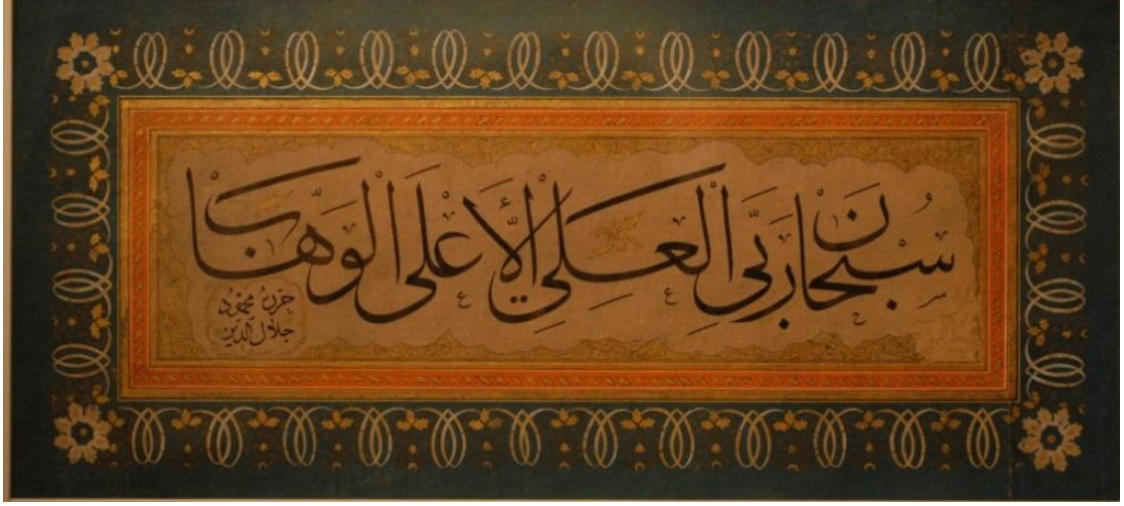 سُبْحَانَ رَبِّيَ الْعَلِيِّ الْأَعْلَى الْوَهَّابْ
حرره محمود
جلال الدين